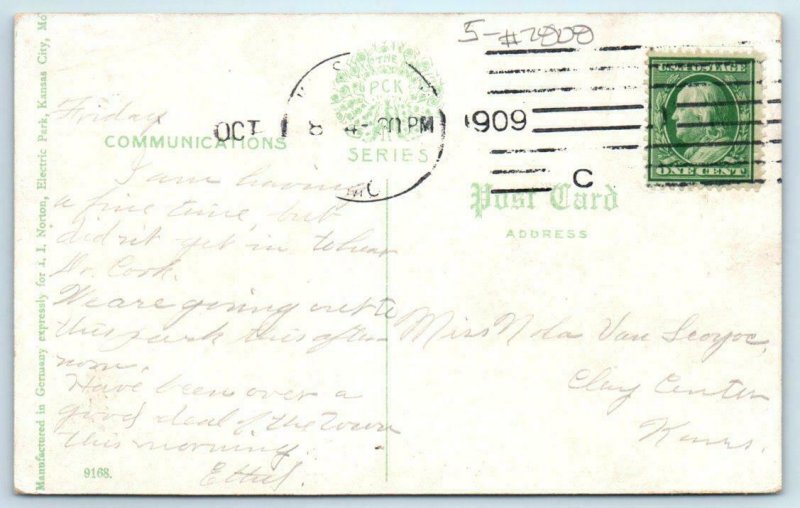 5-#2808
THE
PCK
SERIES
OCT 8 4-30PM
1909
MO
C
U.S. POSTAGE
ONE CENT
COMMUNICATIONS
Post Card
ADDRESS
Friday
I am having
a fine time, but
didn't get in to hear
Dr. Cook.
We are going out to
this park this after
noon.
Have been over a
good deal of the town
this morning.
Ethel.
Miss Nola Van Scoyoc,
Clay Center
Kans.
9168.
Manufactured in Germany expressly for J. I. Norton, Electric Park, Kansas City, Mo